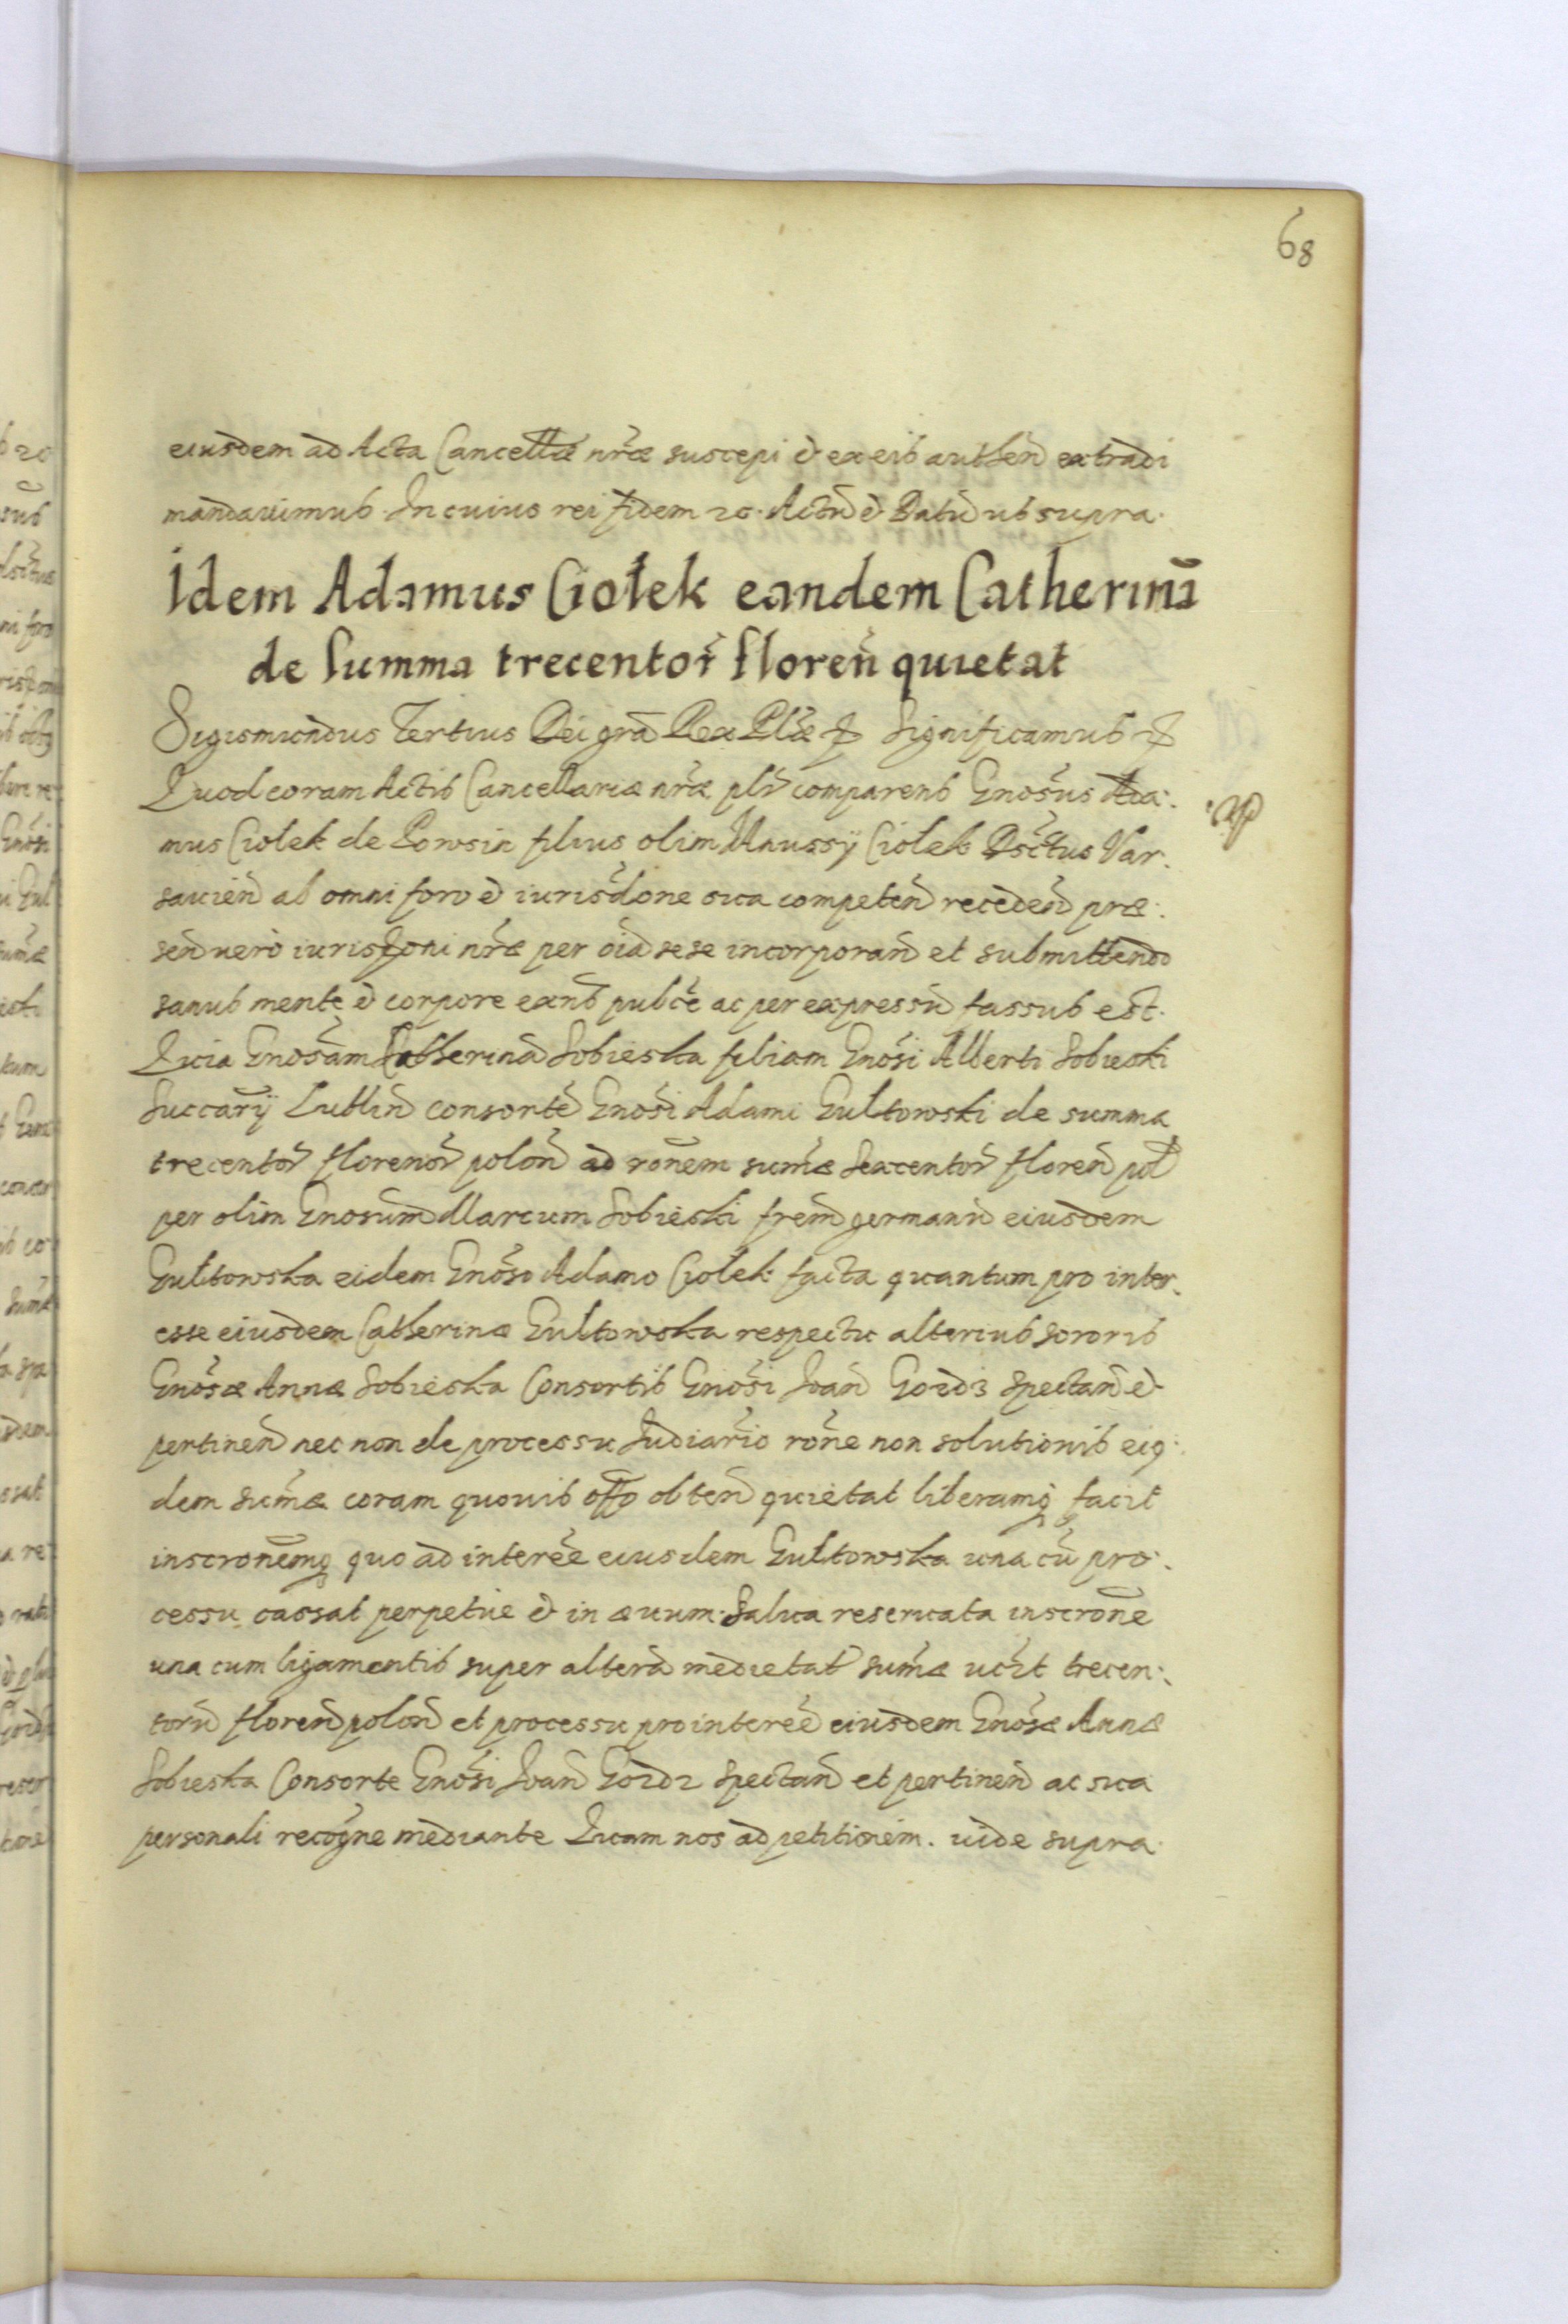 68
eiusdem ad Acta Cancellae nrae suscepi et ex eis authen extradi
mandavimus. In cuius rei fidem zc. Actu et Datu ut supra.
Idem Adamus Ciołek eandem Catherinā
de Summa trecentor̃ floreñ quietat
Sigismundus Tertius Dei grā Rex Plae Significamus
Quod coram Actis Cancellariae nrae plr comparens Gnosus Ada:
mus Ciołek de Powsin filius olim Ciołek Dsctus Var:
savien ab omni foro et iurisdone sua competen receden prae:
sen vero iurisdoni nrae per oia sese incorporan et submittendo
sanus mente et corpore exns pubce ac per expressu fassus est.
Quia Gnosam Catherina Sobieska filiam Gnosi Alberti Sobieski
Succary Lublin consorte Gnosi Adami Gultowski de summa
trecentor florenor polon ad ronem sumae sexcentor floren pol
per olim Gnosum Marcum Sobieski frem germanu eiusdem
Gultowska eidem Gnoso Adamo Ciołek facta quantum pro inter:
esse eiusdem Catherinae Gultowska respectu alterius sororis
Gnosae Annae Sobieska Consortis Gnosi Joan spectan et
pertinen nec non de processu Judiario rone non solutionis eiq:
dem sumae coram quovis offo obten quietat liberamq facit
inscronemq quo ad interee eiusdem Gultowska una cu pro:
cessu cassat perpetue et in aevum. Salva reservata inscrone
una cum ligamentis super altera medietat sumae uczt trecen:
toru floren polon et processu pro interee eiusdem Gnosae Annae
Sobieska Consorte Gnosi Joan spectan et pertinen ac sua
personali recogne mediante Quam nos ad petitionem. vide supra.